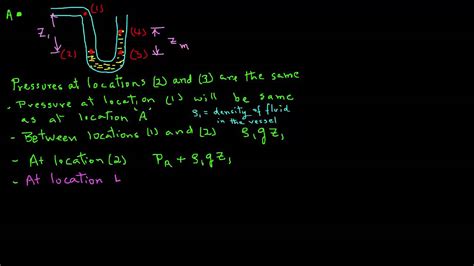 A
(1)
(4)
Z₁
Zₘ
(2)
(3)
Pressures at locations (2) and (3) are the same
- Pressure at location (1) will be same
as at location A
ρ₁ = density of fluid
in the vessel
- Between locations (1) and (2) ρ₁gZ₁
- At location (2) P_A + ρ₁gZ₁
- At location